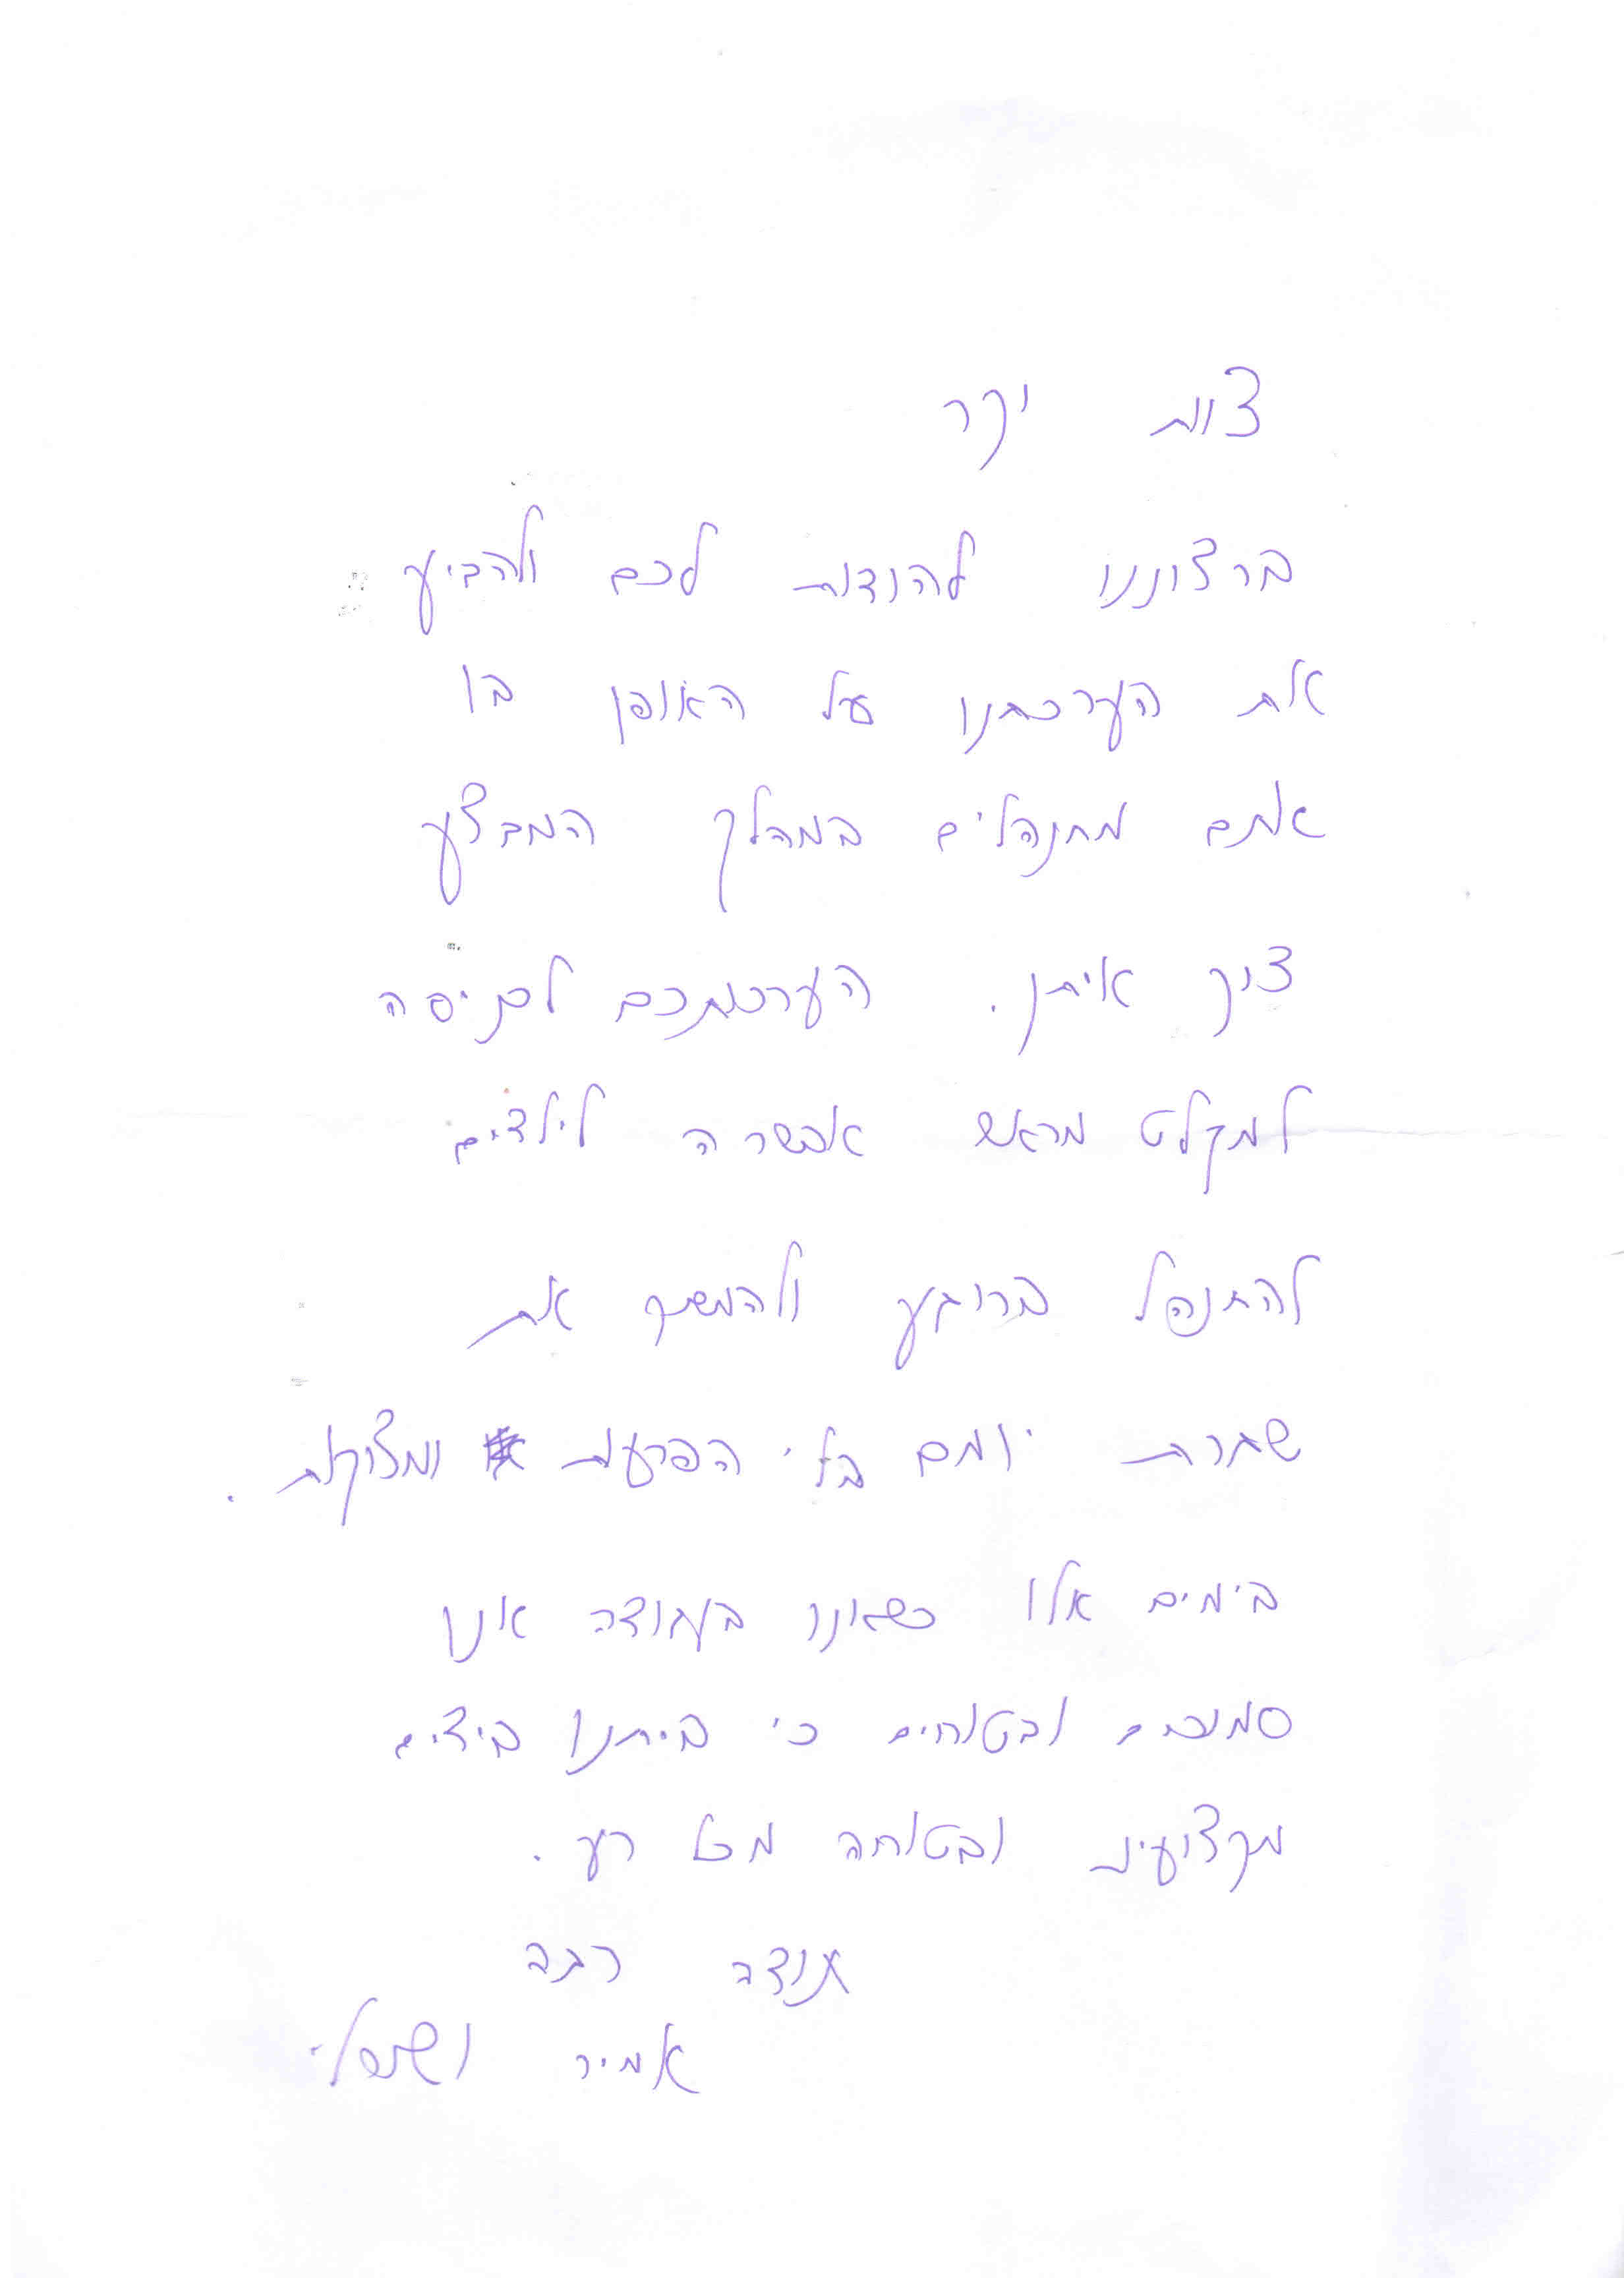 צוות יקר
ברצוננו להודות לכם ולהביע
את הערכתנו על האופן בו
אתם מתנהלים במהלך המבצע
צוק איתן. הערכותכם לכניסה
למקלט מראש אפשרה לילדים
להתנהל ברוגע ולהמשיך את
שגרת יומם בלי הפרעות ומצוקות.
בימים אלו כשאנו בעבודה אנו
סמוכים ובטוחים כי ביתנו בידיים
מקצועיות ובטוחה מכל רע.
תודה רבה
אמיר